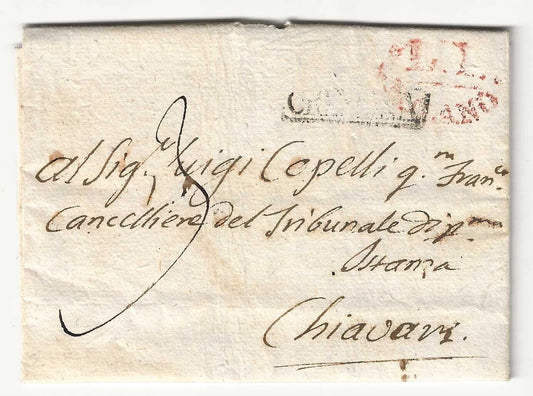 L.L.
3
al Sig.r Luigi Copelli q.m Fran.co
Cancelliere del Tribunale di p.ma
Istanza
Chiavari.